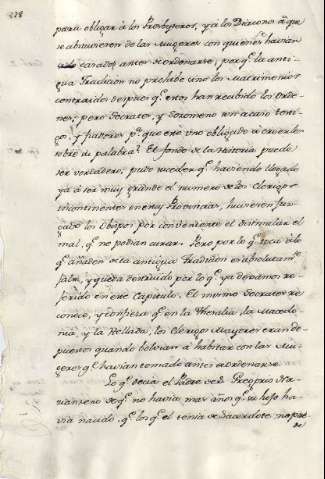 para obligar à los Presbyteros, y a los Diaconos à que
se abstuviesen de las Mugeres con quienes havian
casado antes de ordenarse, porq.e la anti-
gua Tradicion no prohibe sino los Matrimonios
contraidos despues q.e estos han recibido los Orde-
nes; pero Socrates, y Sozomeno son acaso
y q.e ese uno obligado à creerlos
sobre su palabra? El fondo de la Historia puede
ser verdadero, pudo suceder q.e haviendo llegado
ya à ser muy grande el numero de los Clerigos
incontinentes en esas Provincias, huviesen juz-
gado los Obispos por conveniente el disimular el
mal, q.e no podian curar. Pero por lo q.e toca à lo
q.e añaden de la antigua Tradicion es absolutam.te
falso, y queda destruido por lo q.e ya dexamos re-
ferido en este Capitulo. El mismo Socrates re-
conoce, y confiesa q.e en la Thesalia, la Macedo-
nia, y la Hellada, los Clerigos Mayores eran de-
puestos quando bolvian à habitar con las Mu-
geres q.e havian tomado antes de ordenarse.
Lo q.e decia el Padre de S. Gregorio Na-
cianceno de q.e no havia mas años q.e su hijo ha-
via nacido, q.e los q.e el tenia de Sacerdote no